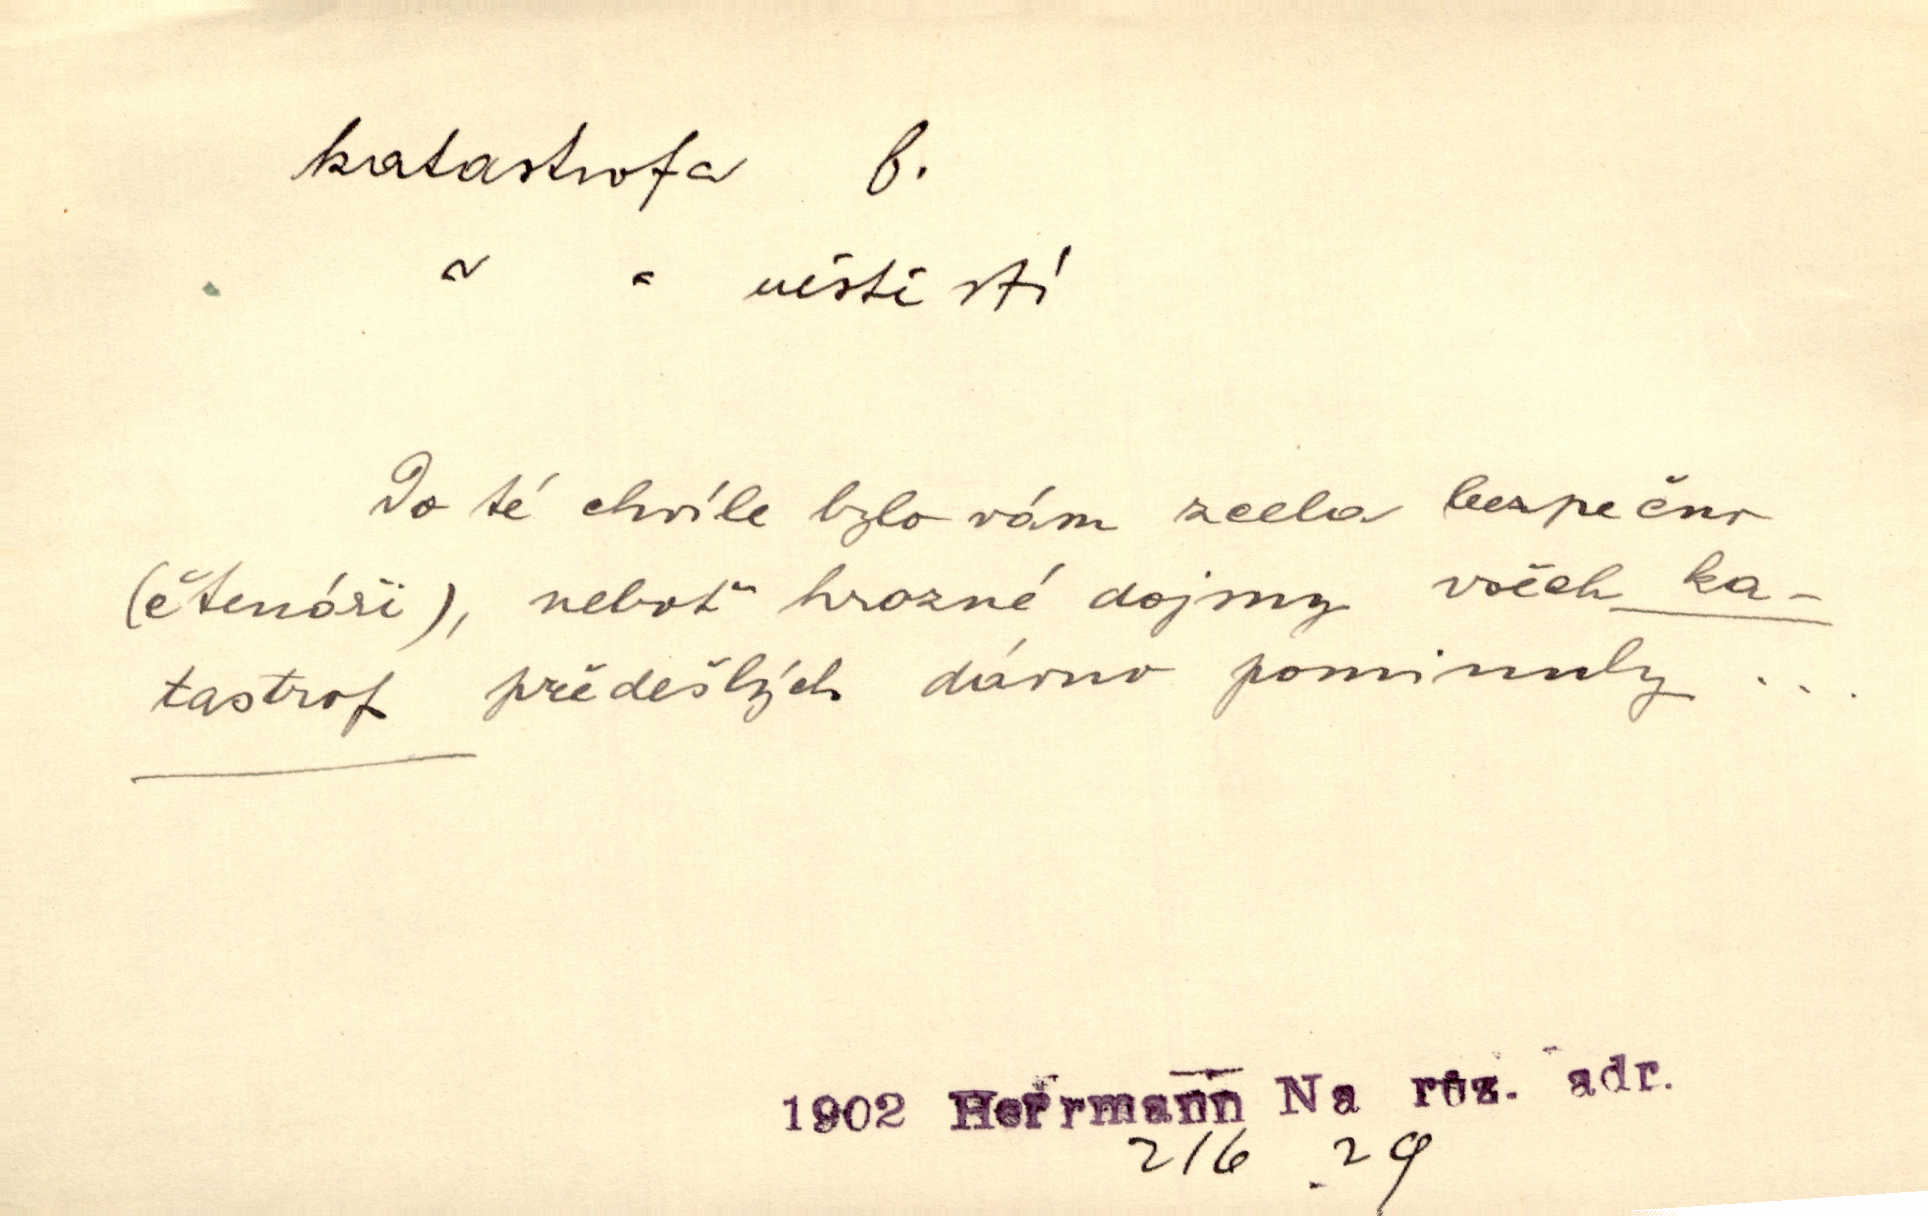 katastrofa f.
" " neštěstí
Do té chvíle bylo vám zcela bezpečno
(čtenáři), neboť hrozné dojmy všech ka-
tastrof předešlých dávno pominuly ...
1902 Herrmann Na růz. adr.
216 29